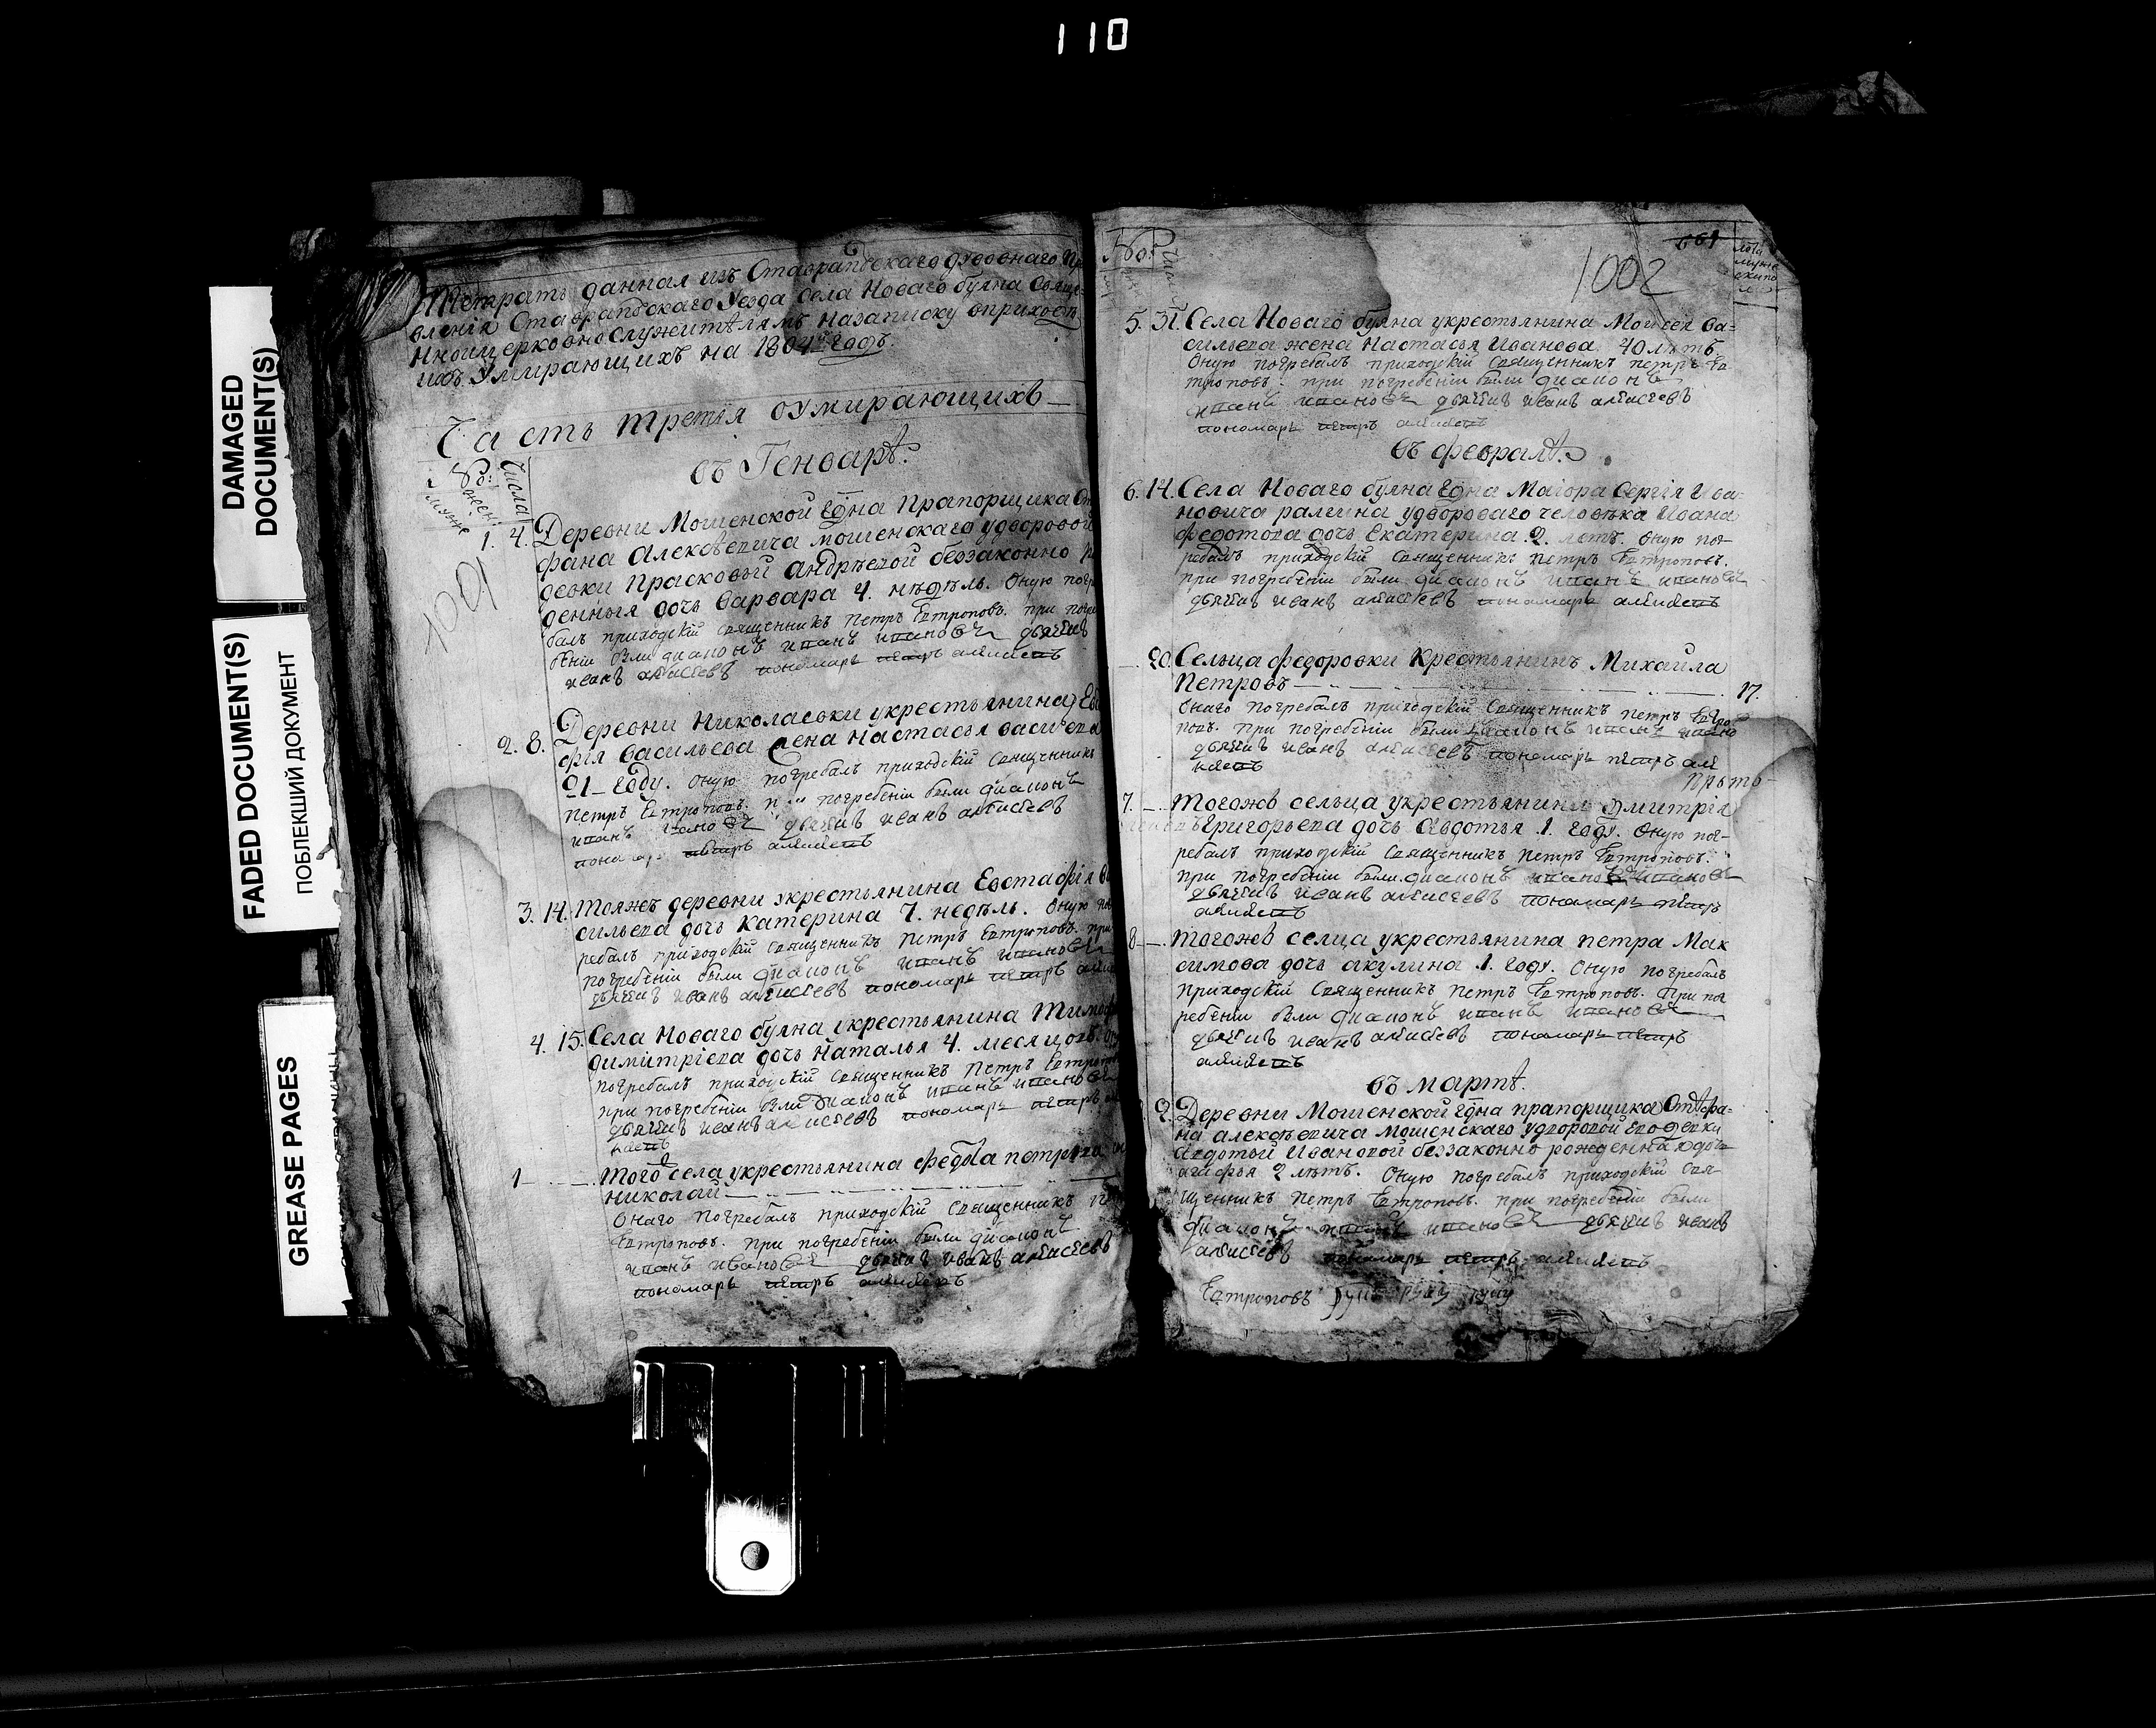 110
DAMAGED
DOCUMENT(S)
FADED DOCUMENT(S)
ПОБЛЕКШИЙ ДОКУМЕНТ
GREASE PAGES
Тетрать данная изъ Ставрапольскаго духовнаго
вления Ставрапольскаго уезда села Новаго буяна Свяще
нноицерковнослужителямъ назаписку вприходѣ
ихъ Умирающихъ на 1804й годъ.
Часть третія оумирающихъ
въ Генварѣ.
№: Числа
1. 4. Деревни Мошенской Гдна Прапорщика Сте
фана Алексѣевича мошенскаго удворовой
девки Прасковьи андрѣевой беззаконно
денныя дочь варвара 4. нѣдѣль. Оную погре
балъ приходскій Священникъ Петръ Евтроповъ. при погре
беніи были диаконъ иванъ ивановъ дьячекъ
иванъ алѣксеевъ пономарь петръ алексеевъ
1001
2. 8. Деревни Николаевки укрестьянина Евс
фія васильева жена настасья васильева
21 году. Оную погребалъ приходскій священникъ
Петръ Евтроповъ. при погребеніи были диаконъ
иванъ ивановъ дьячекъ иванъ алѣксеевъ
пономарь петръ алексеевъ
3. 14. Тояжъ деревни укрестьянина Евстафія ва
сильева дочь катерина 7. недѣль. Оную пог
ребалъ приходскій священникъ Петръ Евтроповъ. при
погребеніи были диаконъ иванъ ивановъ
дьячекъ иванъ алѣксеевъ пономарь петръ
4. 15. Села Новаго буяна укрестьянина Тимоф
димитріева дочь наталья 4. месяцовъ.
погребалъ приходскій священникъ Петръ Евтропов
при погребеніи были диаконъ иванъ ивановъ
дьячекъ иванъ алѣксеевъ пономарь петръ
1 Того села укрестьянина федота петрова
николай
Онаго погребалъ приходскій священникъ
Евтроповъ. При погребеніи были диаконъ
иванъ ивановъ дьячекъ иванъ алѣксеевъ
пономарь петръ алексеевъ
№:
1002
5. 31. Села Новаго буяна укрестьянина Моисея ва=
сильева жена настасья иванова 40 лѣтъ
Оную погребалъ приходскій Священникъ петръ Ев
троповъ. при погребеніи были диаконъ
иванъ ивановъ дьячекъ иванъ алѣксеевъ
пономарь петръ алексеевъ
въ февралѣ.
6. 14. Села Новаго буяна Гдна Маіора Сергія Ива=
новича ралгина удвороваго человѣка Ивана
федотова дочь Екатерина 2. летъ. Оную пог=
ребалъ приходскій Священникъ Петръ Евтроповъ.
при погребеніи были диаконъ иванъ ивановъ
дьячекъ иванъ алѣксеевъ пономарь алексеевъ
20. Сельца федоровки Крестьянинъ Михайла
Петровъ 17.
Онаго погребалъ приходскій Священникъ Петръ Евтро
повъ. При погребеніи были диаконъ иванъ ивано
дьячекъ иванъ алѣксеевъ пономарь петръ але
ксеевъ
Прото-
7. Тогожъ сельца укрестьянина Дмитрія
Григорьева дочь Авдотья 1. году. Оную пог=
ребалъ приходскій Священникъ Петръ Евтроповъ.
при погребеніи были диаконъ ивановъ
дьячекъ иванъ алѣксеевъ пономарь петръ
алексеевъ
8 Тогожъ селца укрестьянина петра Мак
симова дочь акулина 1. году. Оную погребалъ
Приходскій Священникъ Петръ Евтроповъ. При пог
ребеніи были диаконъ иванъ ивановъ
дьячекъ иванъ алѣксеевъ пономарь петръ
алексеевъ
въ мартѣ.
2. Деревни Мошенской Гдна прапорщика Стефа=
на алексѣевича мошенскаго удворовой его девки
Авдотьи Ивановой беззаконно рожденная дочь
агафья 2 лѣтъ. Оную погребалъ приходскій Свя
щенникъ Петръ Евтроповъ. при погребеніи были
диаконъ иванъ ивановъ дьячекъ иванъ
алѣксеевъ пономарь петръ алексеевъ
Евтроповъ руку